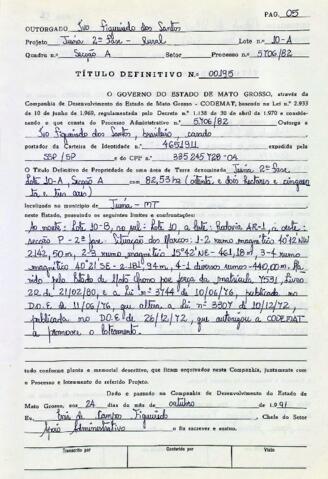 PAG. 05
OUTORGADO Ivo Figueiredo dos Santos
Projeto Juína 2ª Fase - Rural Lote n.º 10-A
Quadra n.º Secção A Setor Processo n.º 5706/82
TÍTULO DEFINITIVO N.º 00195
O GOVERNO DO ESTADO DE MATO GROSSO, através da
Companhia de Desenvolvimento do Estado de Mato Grosso - CODEMAT, baseado na Lei n.º 2.933
de 10 de Junho de 1969, regulamentada pelo Decreto n.º 1.138 de 30 de abril de 1970 e considerando
o que consta do Processo Administrativo n.º 5706/82 Outorga a
Ivo Figueiredo dos Santos, brasileiro, casado
portador da Carteira de Identidade n.º 4651911 expedida pela
SSP/SP e do CPF n.º 335245728-04
O Título Definitivo de Propriedade de uma área de Terra denominada Juína 2ª Fase,
Lote 10-A, Secção A com 82,53 ha (oitenta, e dois Hectares e cinquenta
e três ares)
localizada no município de Juína - MT
neste Estado, possuindo os seguintes limites e confrontações:
Ao norte: Lote 10-B, ao sul: Lote 10, a leste: Rodovia AR-1, a oeste:
secção P - 2ª fase. Situação dos Marcos: 1-2 rumo magnético 40°12'NW
2142,50 m, 2-3 rumo magnético 15°42'NE - 461,18 m, 3-4 rumo
magnético 40°21'SE - 2.181,94 m, 4-1 diversos rumos - 440,00 m.
pelo Estado de Mato Grosso por força da matrícula 7531, Livro
2R de 21/02/80, e a lei nº 3744 de 10/06/76, publicado no
D.O.E de 11/06/76, que altera a lei nº 3307 de 10/12/72,
publicada no D.O.E de 26/12/72, que autorizou a CODEMAT
a promover o loteamento.
tudo conforme planta e memorial descritivo, que ficam arquivados nesta Companhia, juntamente com
o Processo e Loteamento do referido Projeto.
Dado e passado na Companhia de Desenvolvimento do Estado de
Mato Grosso, aos 24 dias do mês de outubro de 1.991
Eu, de Campos Figueiredo Chefe do Setor
Apoio Administrativo o fiz escrever e assino.
Transcrito por Conferido por Visto